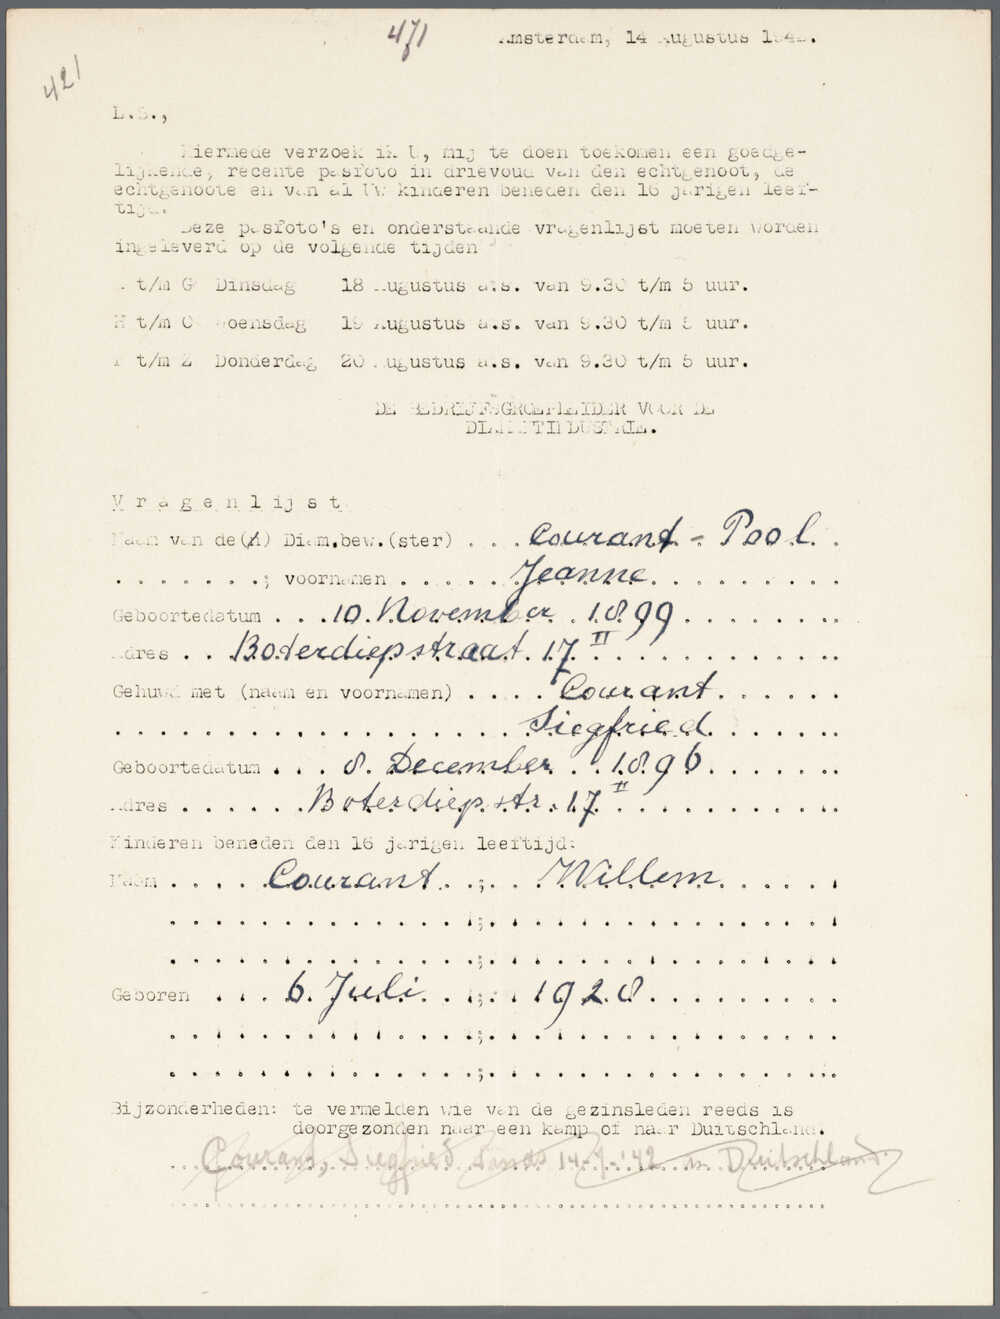 471
421
Amsterdam, 14 Augustus 1942.
L.S.,
Hiermede verzoek ik U, mij te doen toekomen een goedge-
lijkende, recente pasfoto in drievoud van den echtgenoot, de
echtgenoote en van al Uw kinderen beneden den 16 jarigen leef-
tijd.
Deze pasfoto's en onderstaande vragenlijst moeten worden
ingeleverd op de volgende tijden
A t/m G Dinsdag 18 Augustus a.s. van 9.30 t/m 5 uur.
H t/m O Woensdag 19 Augustus a.s. van 9.30 t/m 5 uur.
P t/m Z Donderdag 20 Augustus a.s. van 9.30 t/m 5 uur.
DE BEDRIJFSGROEPLEIDER VOOR DE
DIAMANTINDUSTRIE.
Vragenlijst
Naam van de(n) Diam.bew.(ster) . . . Courant - Pool .
. . . . . . . ; voornamen . . . . . Jeanne . . . . . . . . . .
Geboortedatum . . . 10 November 1899 . . . . . . . .
Adres . . Boterdiepstraat 17 II . . . . . . . . . . . .
Gehuwd met (naam en voornamen) . . . . Courant . . . . . .
. . . . . . . . . . . . . . . . . . Siegfried . . . . . . .
Geboortedatum . . . 8 December . . 1896 . . . . . . .
Adres . . . . . . Boterdiepstr. 17 II . . . . . . . . . . .
Kinderen beneden den 16 jarigen leeftijd:
Naam . . . . Courant . . ; . . Willem . . . . . .
Geboren . . . . 6 Juli . . ; . . 1928 . . . . . . . . .
Bijzonderheden: te vermelden wie van de gezinsleden reeds is
doorgezonden naar een kamp of naar Duitschland.
. . . Courant, Siegfried sinds 14-7-'42 in Duitschland.